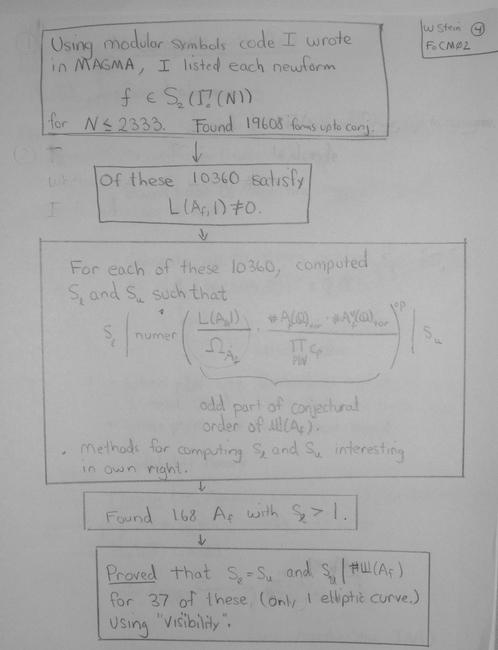 W Stein 4
FoCM02
Using modular symbols code I wrote
in MAGMA, I listed each newform
f ∈ S₂(Γ₀(N))
for N ≤ 2333. Found 19608 forms up to conj.
Of these 10360 satisfy
L(A_f, 1) ≠ 0.
For each of these 10360, computed
S_ℓ and S_u such that
S_ℓ | numer ( L(A_f,1) / Ω_{A_f} · #A_f(Q)_tor · #A_f^∨(Q)_tor / ∏_{p|N} c_p )^{op} | S_u
odd part of conjectural
order of Ш(A_f).
• methods for computing S_ℓ and S_u interesting
in own right.
Found 168 A_f with S_ℓ > 1.
Proved that S_ℓ = S_u and S_u | #Ш(A_f)
for 37 of these (only 1 elliptic curve.)
Using "visibility".